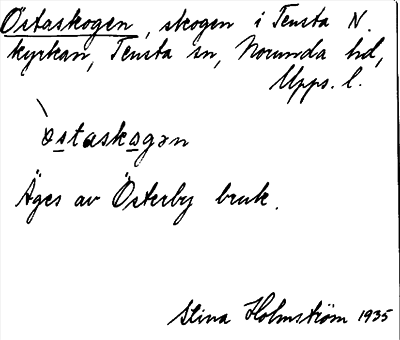 Östaskogen, skogen i Tensta N.
kyrkan, Tensta sn, Norunda hd,
Upps. l.
`østaskogən
Äges av Österby bruk.
Stina Holmström 1935